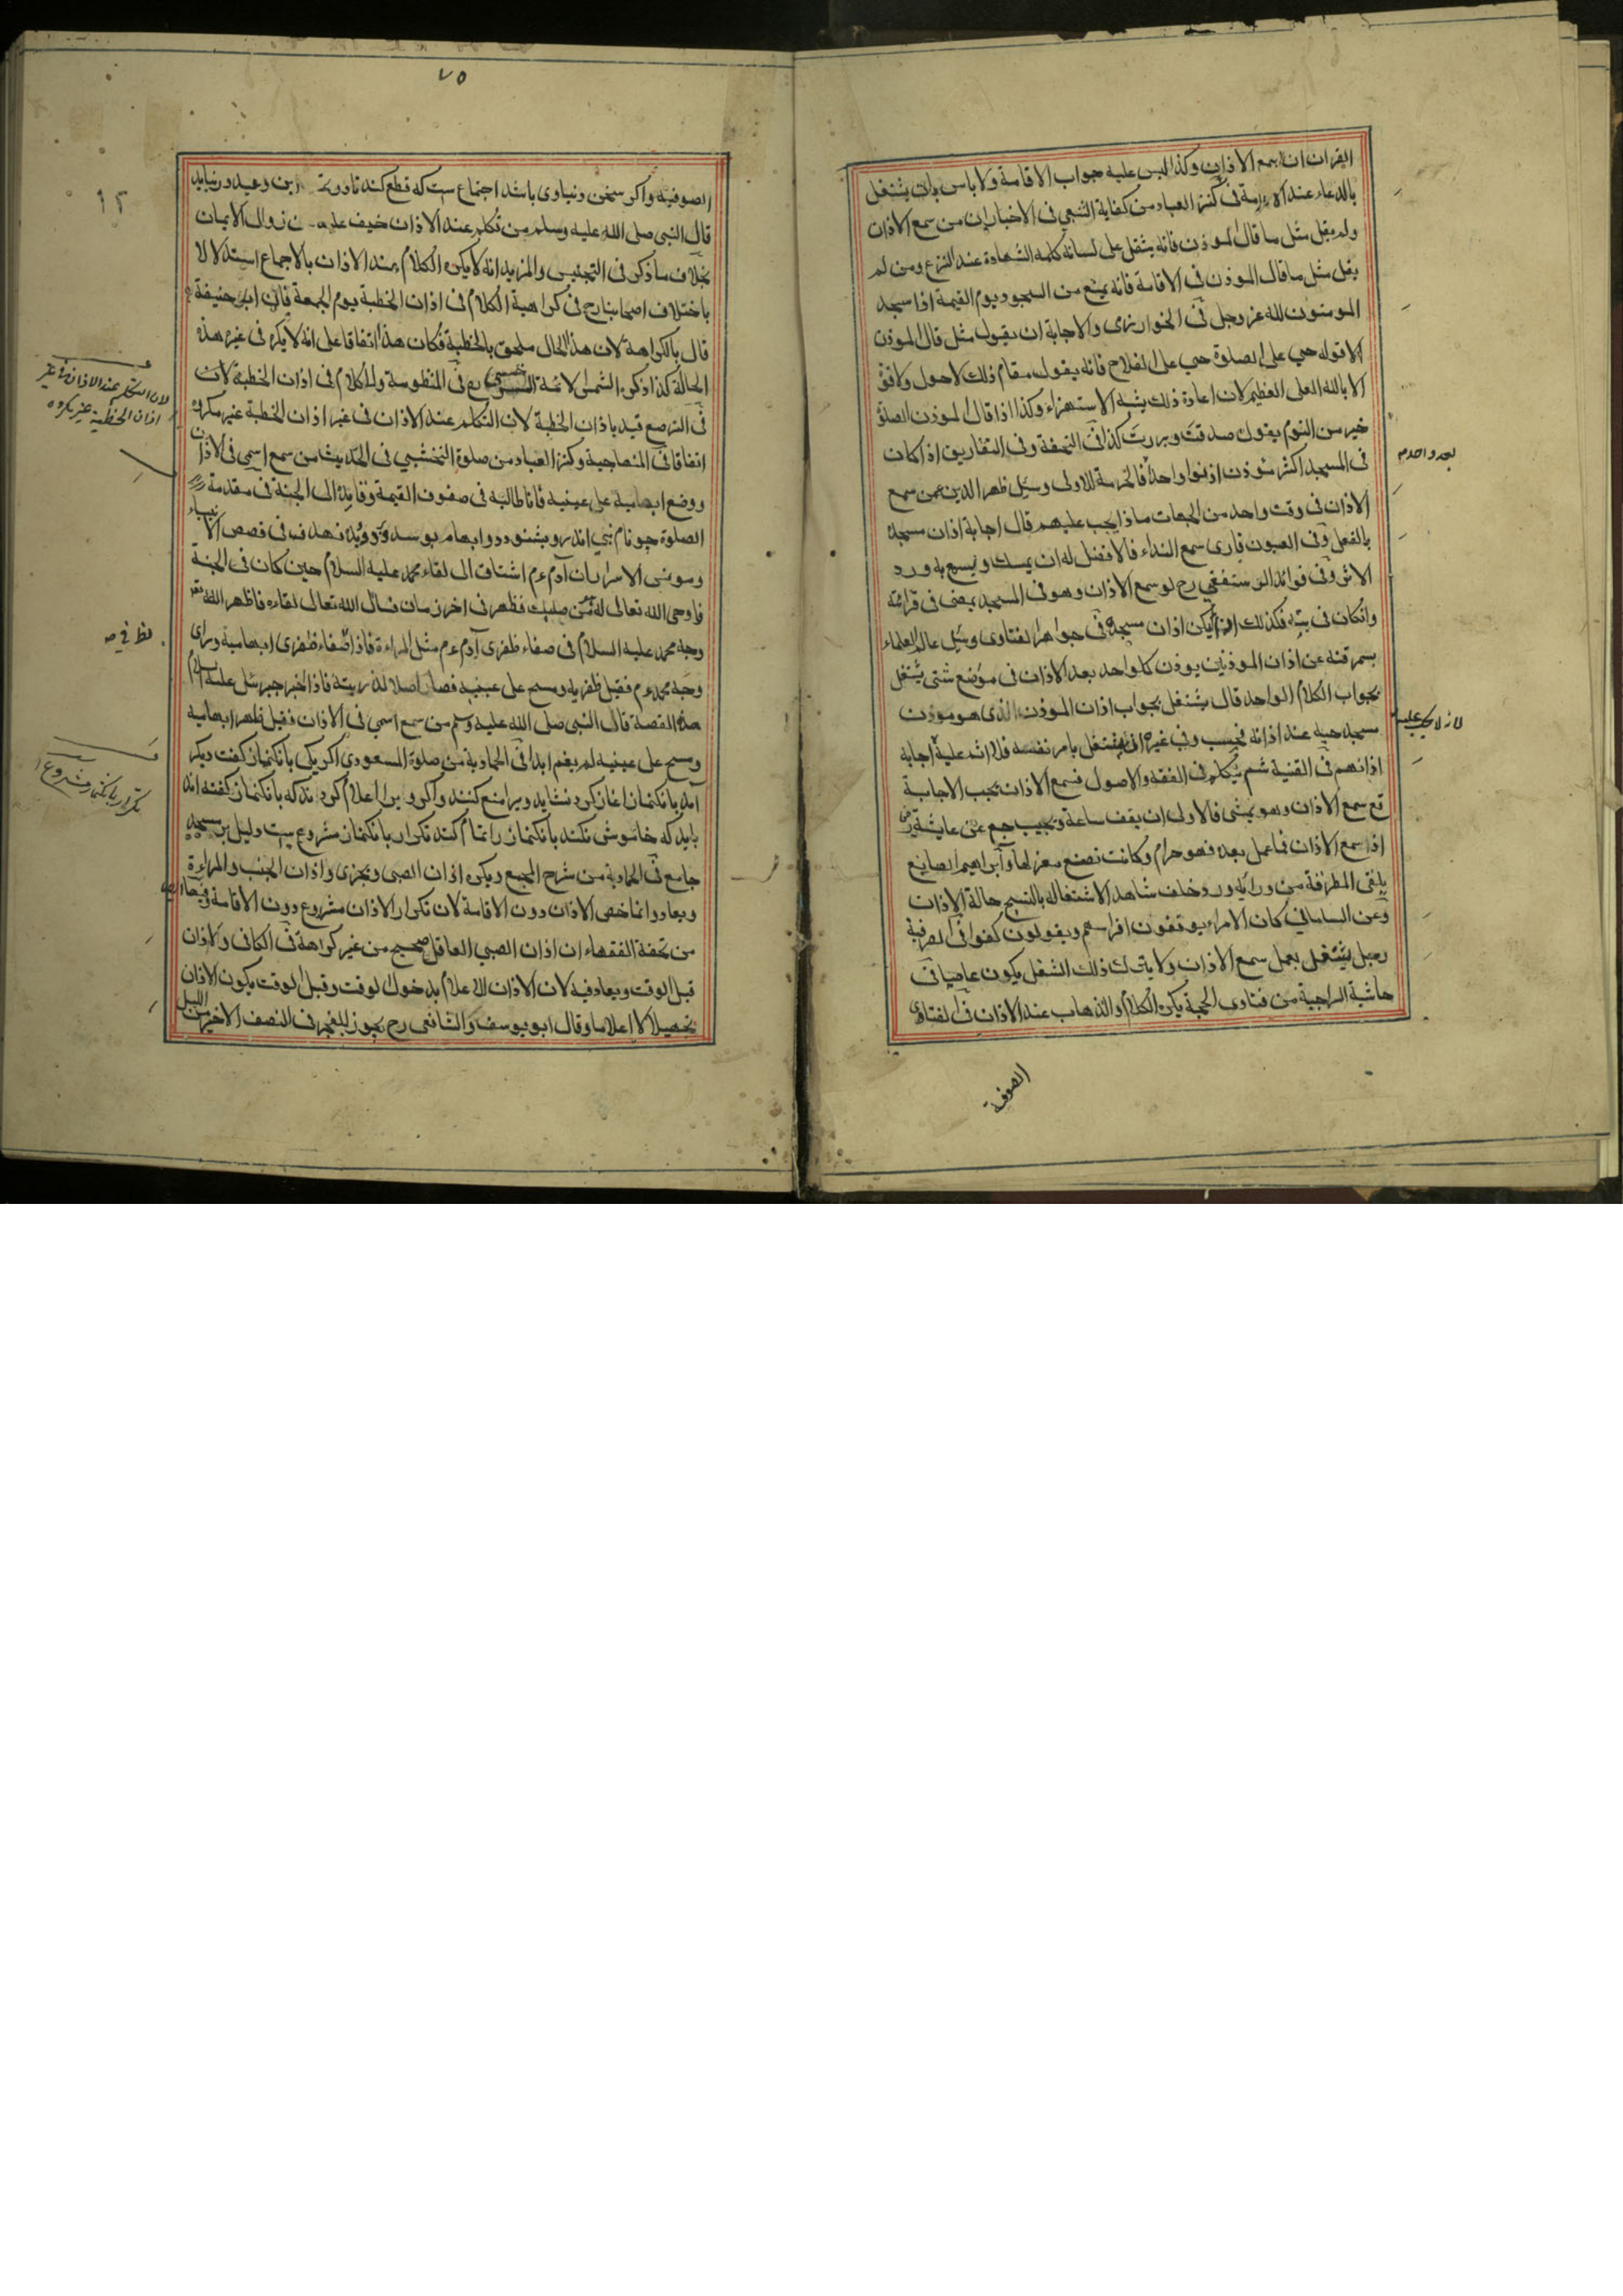 القران ان يسمع الاذان وكذا ليس عليه جواب الاقامة ولا باس بان يشتغل
بالدعاء عند الاقامة فى كنز العباد من كفاية الشعبي فى الاخبار ان من سمع الاذان
ولم يقل مثل ما قال الموذن فانه يثقل على لسانه كلمة الشهادة عند النزع ومن لم
يقل مثل ما قال الموذن فى الاقامة فانه يمنع من السجود يوم القيمة اذا سجد
المومنون لله عز وجل فى الخوارزمى والاجابة ان يقول مثل قال الموذن
الا قوله حي على الصلوة حي على الفلاح فانه يقول مقام ذلك لا حول ولا قوة
الا بالله العلى العظيم لان اعادة ذلك يشبه الاستهزاء وكذا اذا قال الموذن الصلوة
خير من النوم يقول صدقت وبررت كذا فى التحفة وفى التفاريق اذ اكان
فى المسجد اكثر من موذن اذنوا واحدا فالحرمة للاولى وسئل ظهر الدين عمن سمع
الاذان فى وقت واحد من الجهات ماذا يجب عليهم قال اجابة اذان مسجده
بالفعل وفى العيون قارى سمع النداء فالافضل له ان يمسك ويسمع به ورد
الاثر وفى فوائد الرستغفنى رح لو سمع الاذان وهو فى المسجد يمضى فى قرائته
وانكان فى بيته فكذلك ان لم يكن اذان مسجده فى جواهر الفتاوى وسئل عالم العلماء
بسمرقند عن اذان الموذنين يوذن كل واحد بعد الاذان فى موضع شتى يشتغل
بجواب الكلام الواحد قال يشتغل بجواب اذان الموذن الذى هو موذن
مسجد حيه عند اذانه فحسب وفى غيره ان يشتغل بامر نفسه فلا اثم عليه اجابة
اذانهم فى القنية ثم يتكلم فى الفقه والاصول فسمع الاذان يجب الاجابة
قع سمع الاذان وهو يمشى فالاولى ان يقف ساعة ويجيب جم عن عايشة رض
اذا سمع الاذان فما عمل بعده فهو حرام وكانت تضع مغزلها وابراهيم الصايغ
يلقى المطرقة من ورائه ورد خلف شاهد الاشتغاله بالنسج حالة الاذان
وعن السامانى كان الامراء يوقفون افراسهم ويقولون كفوا فى الصرفية
رجل يشتغل بعمل سمع الاذان ولا يترك ذلك الشغل يكون عاصيا فى
حاشية السراجية من فتاوى الحجة يكره الكلام والذهاب عند الاذان فى الفتاوى
الصوفية
بعد واحد م
لانه لا يجب عليه
٧٥
الصوفية واكر سخن دنياوى باشد اجتماع ست كه قطع كند تا درين وعيد در نيايد
قال النبى صلى الله عليه وسلم من تكلم عند الاذان خيف عليه من زوال الايمان
بخلاف ما ذكر فى التجنيس والمزيد انه لا يكره الكلام عند الاذان بالاجماع استدلالا
باختلاف اصحابنا رح فى كراهية الكلام فى اذان الخطبة يوم الجمعة فان ابى حنيفة رح
قال بالكراهة لان هذا الحال ملحق بالخطبة فكان هذا اتفاقا على انه لا يكره فى غير هذه
الحالة كذا ذكره الشمس الائمة السرخسى رح فى المنظومة والكلام فى اذان الخطبة لان
فى الترصع قيد باذان الخطبة لان التكلم عند الاذان فى غير اذان الخطبة غير مكروه
اتفاقا فى المنهاجية وكنز العباد من صلوة النخشبي فى الحديث من سمع اسمى فى الاذان
ووضع ابهاميه على عينيه فانا طالبه فى صفوف القيمة وقايده الى الجنة فى مقدمة
الصلوة جو نام نبي اندرو بشنود دو ابهام بوسد بر دو ديده نهد ف فى قصص الانبياء
ومونس الاسرار ان آدم عم اشتاق الى لقاء محمد عليه السلام حين كان فى الجنة
فاوحى الله تعالى له من صلبك فظهر فى اخر زمان فسال الله تعالى لقاءه فاظهر الله تعه
وجه محمد عليه السلام فى صفاء ظفرى آدم عم مثل المراءة فاذا صفاء ظفرى ابهاميه وراى
وجه محمد عم فقبل ظفريه ومسح على عينيه فصار اصلا لذريته فاذا اخبر جبرئيل عليه السلام
هذه القصة قال النبى صلى الله عليه وسلم من سمع اسمى فى الاذان فقبل ظهر ابهاميه
ومسح على عينيه لم يعم ابدا فى الحمادية من صلوة المسعودى اكر يكى بانكنماز كفت ديكر
آمد بانكنماز اغاز كرد نشايد ويرا منع كنند واكر ويرا اعلام كردند كه بانكنماز كفته اند
بايد كه خاموش نكند بانكنماز را تمام كند تكرار بانكنماز مشروع ست وليل بر مسجد
جامع فى الحمادية من شرح المجمع ويكره اذان الصبى ويجزى واذان الجنب والمراءة
ويعاد وانما خص الاذان دون الاقامة لان تكرار الاذان مشروع دون الاقامة
من تحفة الفقهاء ان اذان الصبي العاقل صحيح من غير كراهة فى الكافى والاذان
قبل الوقت ويعاد فيه لان الاذان للاعلام بدخول الوقت وقبل الوقت يكون الاذان
تجهيلا لا اعلاما وقال ابو يوسف والشافعى رح يجوز للفجر فى النصف الاخير من الليل
لان التكلم عند الاذان فى غير
اذان الخطبة غير مكروه
تكرار بانكنماز مشروع